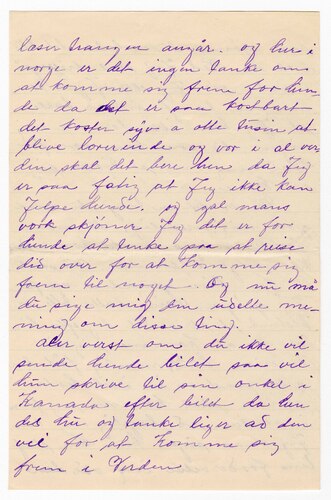 læser trangen angår. og her i
norge er det ingen tanke om
at komme sig frem for hun
de da det er saa kostbart
det koster syv a otte tusin at
blive lærerinde og vor i al ver
den skal det bere hen da Jeg
er saa fatig at Jeg ikke kan
Jelpe hunde. og gal mans
verk skjønner Jeg det er for
hunde at tenke paa at reise
did over for at komme sig
frem til noget. Og nu må
du sige mig din udelte me-
ning om disse ting.
aller verst om du ikke vil
sende hunde bilet saa vil
hun skrive til sin onkel i
Kanada efter bilet da hun
des hu og tanke liger ad den
vei for at komme sig
frem i Verden